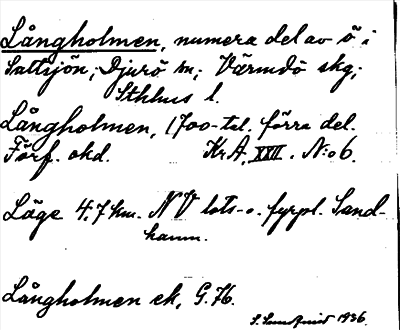 Långholmen, numera del av ö i
Saltsjön; Djurö sn; Värmdö skg;
Sthlms l.
Långholmen, 1700-tal. förra del.
Förf. okd. KrA, XXII. N:o 6.
Läge 4,7 km. NV lots- o. fyrpl. Sand-
hamn.
Långholmen ek, G. 76.
S. Sundquist 1936.